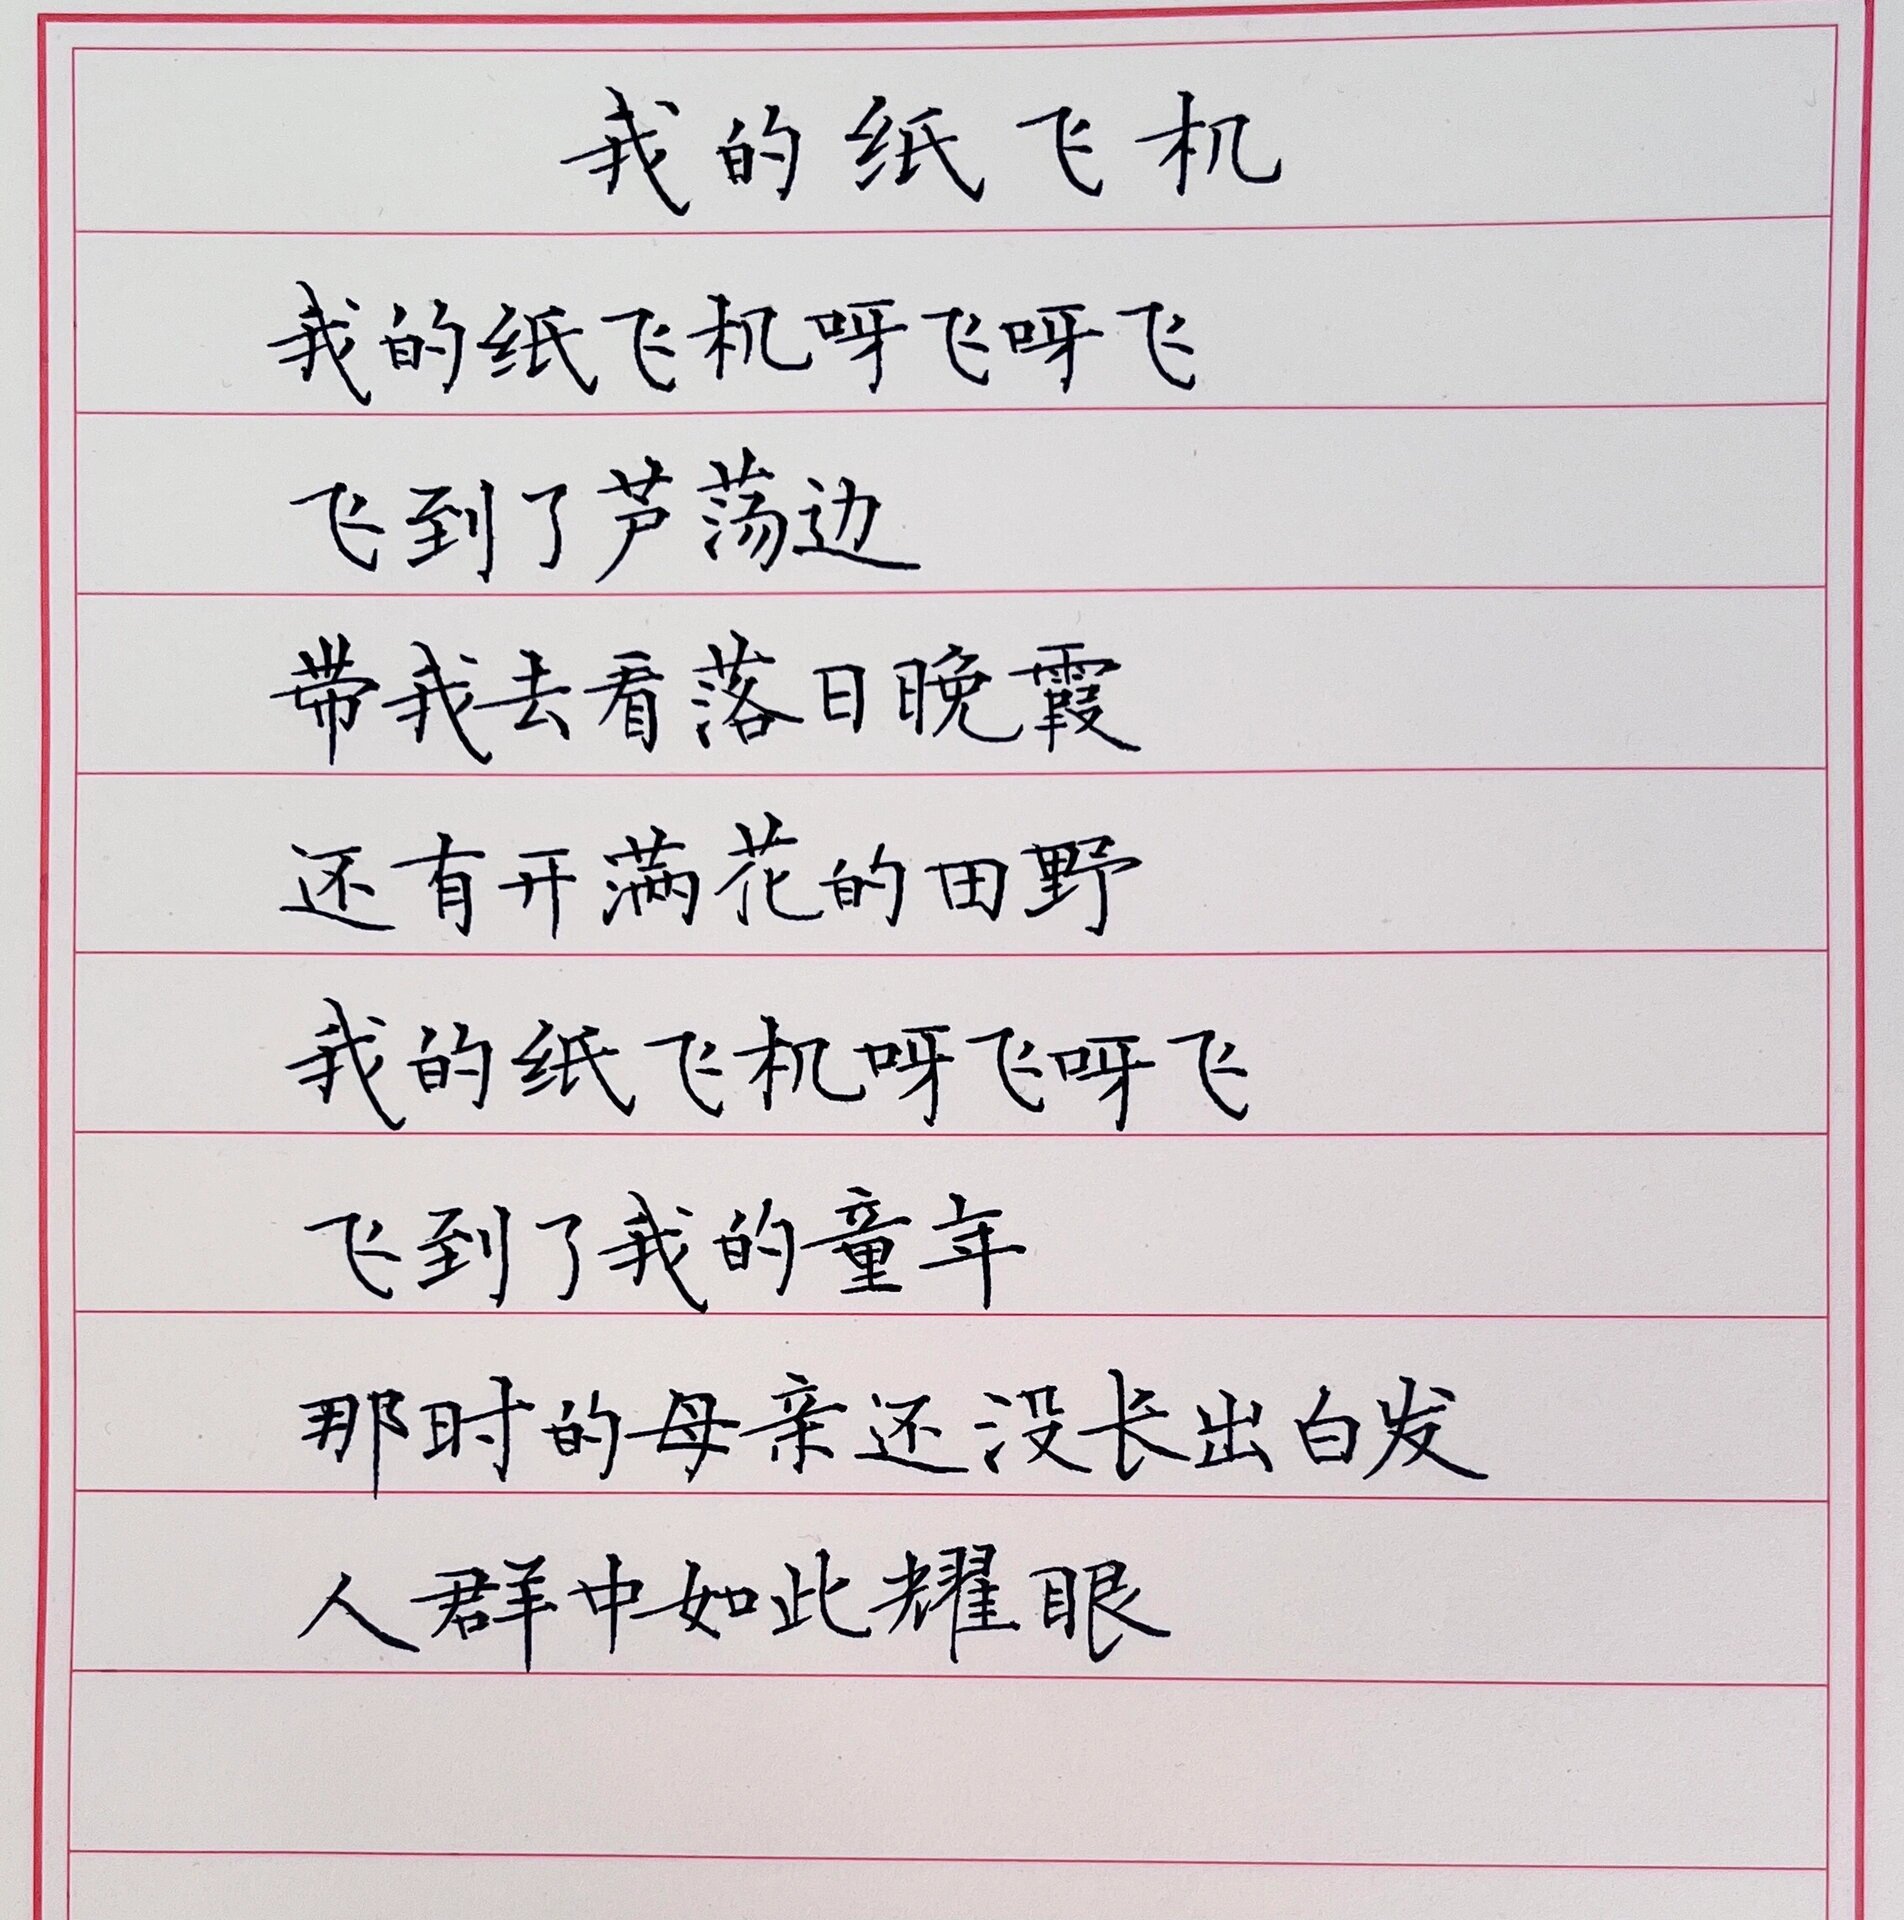 我的纸飞机
我的纸飞机呀飞呀飞
飞到了芦荡边
带我去看落日晚霞
还有开满花的田野
我的纸飞机呀飞呀飞
飞到了我的童年
那时的母亲还没长出白发
人群中如此耀眼